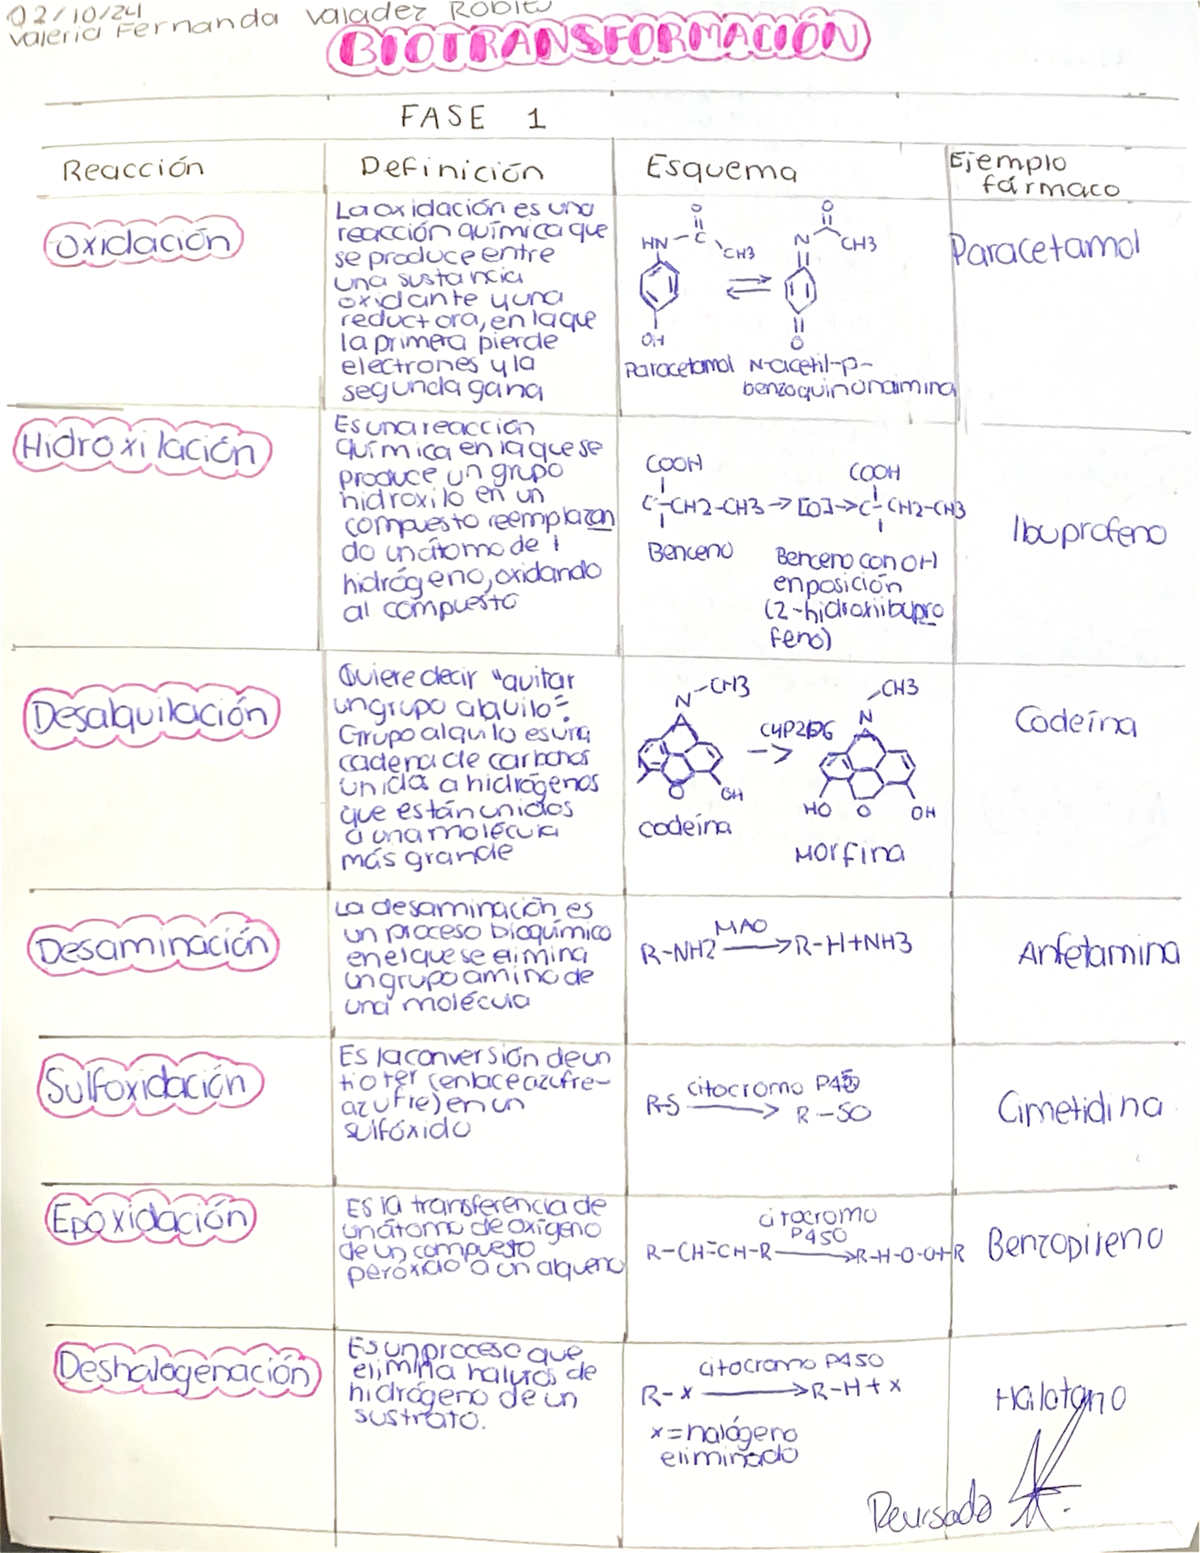 02/10/24
Valeria Fernanda Valadez Robles
BIOTRANSFORMACIÓN
FASE 1
Reacción
Definición
Esquema
Ejemplo
fármaco
Oxidación
La oxidación es una
reacción química que
se produce entre
una sustancia
oxidante y una
reductora, en la que
la primera pierde
electrones y la
segunda gana
O
HN-C
CH3
OH
Paracetamol
O
N
CH3
O
N-acetil-p-
benzoquinonaimina
Paracetamol
Hidroxilación
Es una reacción
química en la que se
produce un grupo
hidroxilo en un
compuesto reemplazan
do un átomo de
hidrógeno, oxidando
al compuesto
COOH
COOH
C-CH2-CH3→[O]→C-CH2-CH3
Benceno
Benceno con OH
en posición
(2-hidroxiibupro
feno)
Ibuprofeno
Desalquilación
Quiere decir "quitar
un grupo alquilo".
Grupo alquilo es una
cadena de carbonos
unida a hidrógenos
que están unidos
a una molécula
más grande
N-CH3
O
OH
codeína
CYP2D6
→
CH3
N
HO O OH
Morfina
Codeína
Desaminación
La desaminación es
un proceso bioquímico
en el que se elimina
un grupo amino de
una molécula
MAO
R-NH2→R-H+NH3
Anfetamina
Sulfoxidación
Es la conversión de un
tioter (enlace azufre-
azufre) en un
sulfóxido
citocromo P45
R-S → R-SO
Cimetidina
Epoxidación
Es la transferencia de
un átomo de oxígeno
de un compuesto
peróxido a un alqueno
citocromo
P450
R-CH=CH-R→R-H-O-O+R
Benzopireno
Deshalogenación
Es un proceso que
elimina haluros de
hidrógeno de un
sustrato.
citocromo P450
R-x→R-H+x
x=halógeno
eliminado
Halotano
Revisado